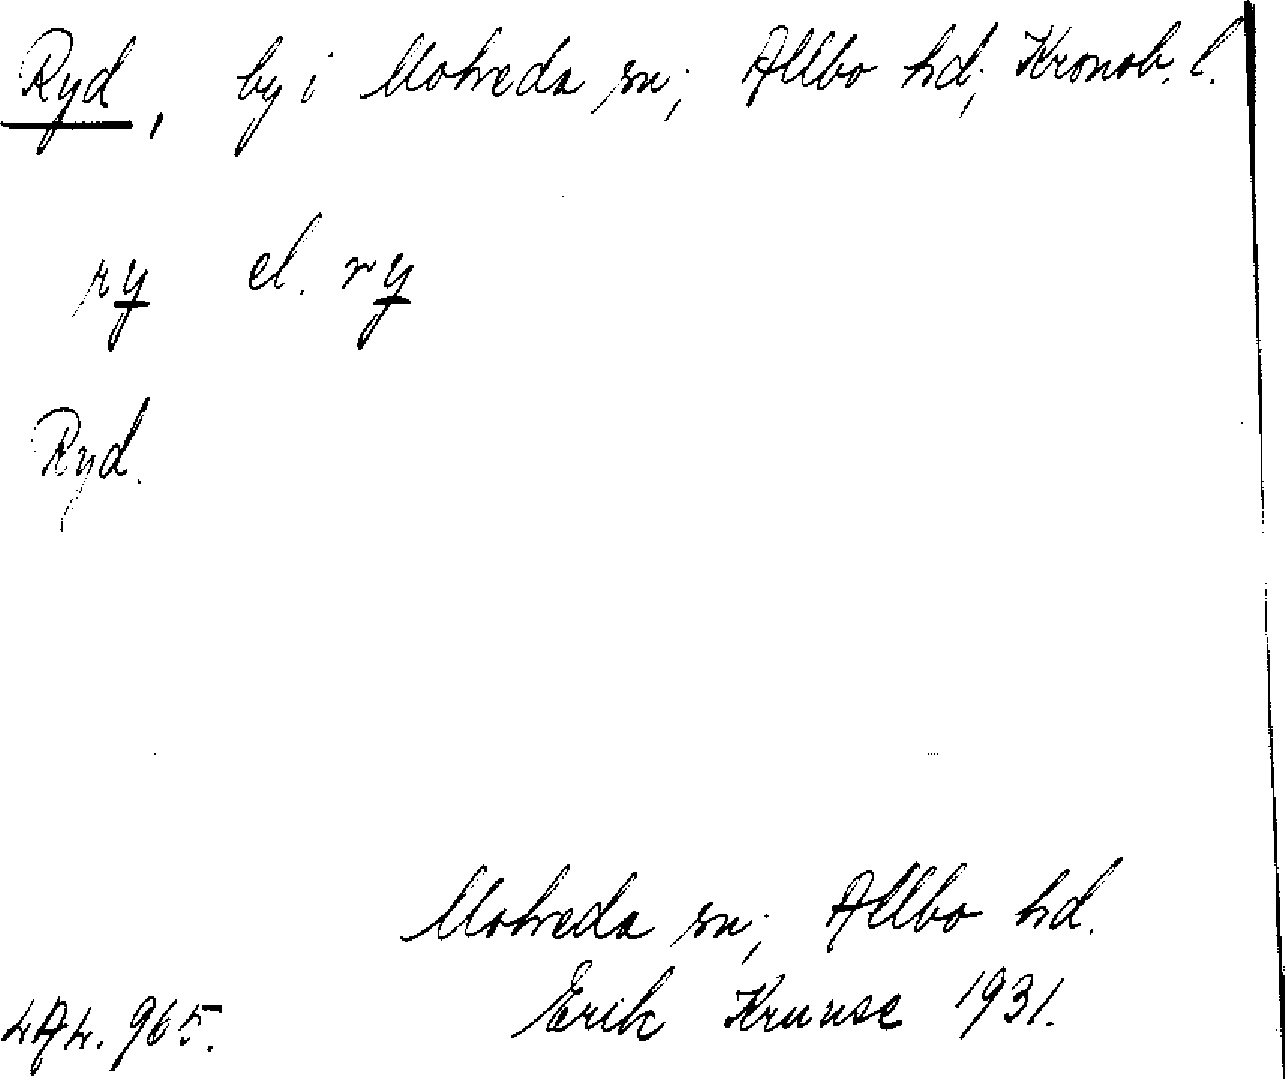 Ryd, by i Moheda sn; Allbo hd; Kronob. l.
ry el. ry
Ryd.
Moheda sn; Allbo hd.
Erik Kruuse 1931.
965.